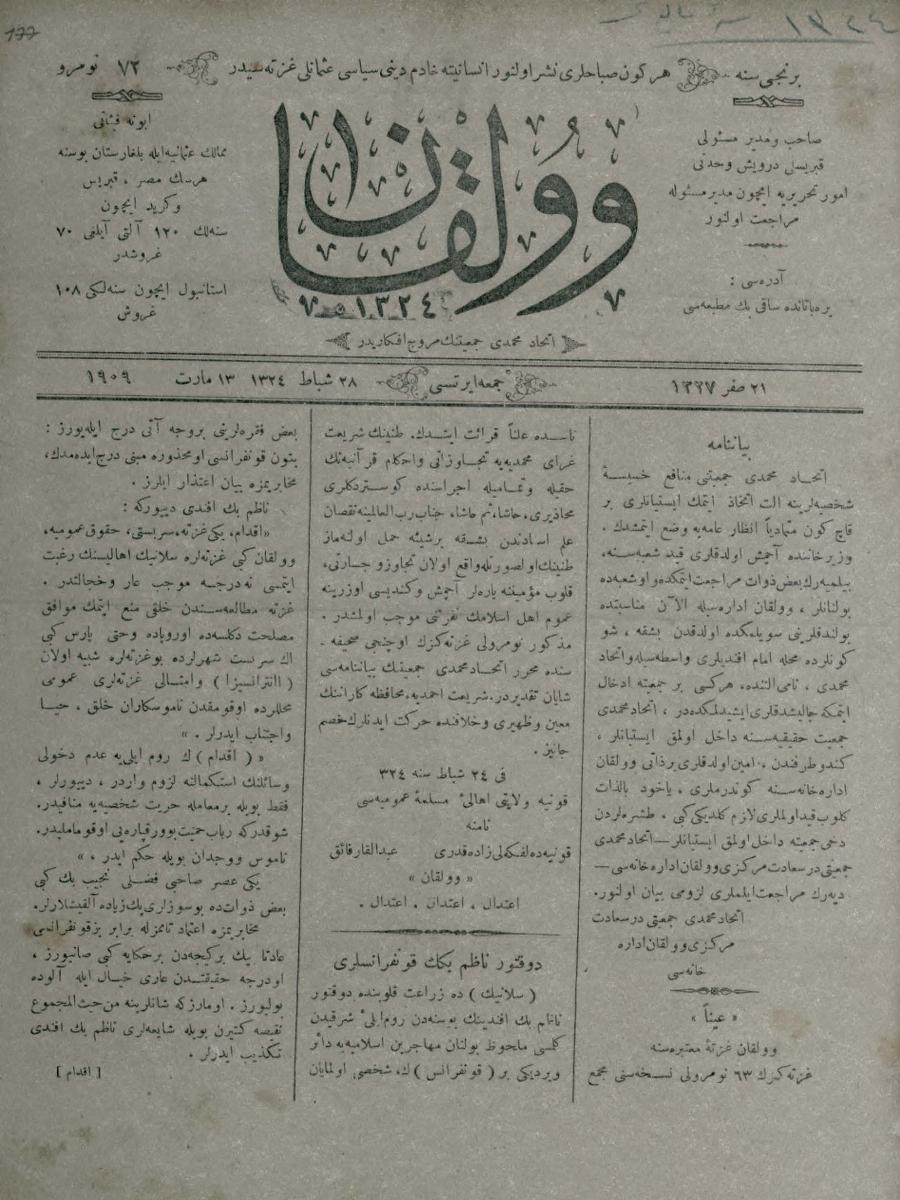 ۱۳۲٤
برنجی سنه
هرکون صباحلری نشر اولنور انسانیته خادم دینی سیاسی عثمانلی غزته سیدر
۷۲ نومرو
صاحب ومدیر مسئولی
قبریسلی درویش وحدتی
امور تحریریه ایچون مدیر مسئوله
مراجعت اولنور
آدره سی :
یره باتانده ساقی بك مطبعه سی
وولقان
۱۳۲٤
ابونه فیئاتی
ممالك عثمانیه ایله بلغارستان بوسنه
هرسك مصر ، قبریس
وکرید ایچون
سنه لك ۱۲۰ آلتی آیلغی ۷۰
غروشدر
استانبول ایچون سنه لکی ۱۰۸
غروش
اتحاد محمدی جمعیتنك مروج افکاریدر
۲۱ صفر ۱۳۲۷
جمعه ایرتسی
۲۸ شباط ۱۳۲٤ ۱۳ مارت ۱۹۰۹
بیاننامه
اتحـاد محمدی جمعیتنی منافع خسیسۀ
شخصیه لرینه الت اتخاذ ایتمك ایستیانلری بر
قاچ کون متمادیاً انظار عامه یه وضع ایتمشدك .
وزیرخاننده آچمش اولدقلری قید شعبه سنه،
بیلمیه رك بعض ذوات مراجعت ایتمکده و اوشعبه ده
بولنانلر ، وولقان اداره سیله الآن مناسبتده
بولندقلرینی سویله مکده اولدقدن بشقه ، شو
کونلرده محله امام افندیلری واسطه سیله واتحاد
محمدی ، نامی آلتنده، هرکسی بر جمعیته ادخال
ایتمکه چالیشدقلری ایشیدلمکده در ، اتحاد محمدی
جمعیت حقیقیه سنه داخل اولمق ایستیانلر ،
کندو طرفندن . امین اولدقلری برذاتی وولقان
اداره خانه سنه کوندرملری ، یاخود بالذات
کلوب قید اولملری لازم کلدیکی کبی ، طشره لردن
دخی جمعیته داخل اولمق ایستیانلر — اتحاد محمدی
جمعیتی درسعادت مرکزی وولقان اداره خانه سی —
دیه رك مراجعت ایلملری لزومی بیان اولنور.
اتحاد محمدی جمعیتی درسعادت
مرکزی وولقان اداره
خانه سی
« عیناً »
وولقان غزتۀ معتبره سنه
غزته کزك ۶۳ نومرولی نسخه سنی مجمع
ناسده علناً قرائت ایتدك. طنینك شریعت
غرای محمدیه یه تجاوزاتی واحکام قرآنیه نك
حقیله وتمامیله اجراسنده کوستردکلری
محاذیری، حاشا، ثم حاشا، جناب رب العالمینه نقصان
علم اسادندن بشقه برشیئه حمل اولنه ماز
طنینك اولصورتله واقع اولان تجاوز و جسارتی،
قلوب مؤمنینه یاره لر آچمش وکندیسی اوزرینه
عموم اهل اسلامك نفرتنی موجب اولمشدر .
مذکور نومرولی غزته کزك اوچنجی صحیفه ـ
سنده محرر اتحـاد محمدی جمعیتك بیاننامه سی
شایان تقدیردر. شریعت احمدیه، محافظه کارانك
معین وظهیری وخلافنده حرکت ایدنلرك خصم
جانیز .
فی ۲٤ شباط سنه ۳۲٤
قونیه ولایتی اهالیٔ مسلمۀ عمومیه سی
نامنه
قونیه ده لفکه لی زاده قدری عبدالقارفائق
« وولقان »
اعتدال ، اعتدال . اعتدال .
دوقتور ناظم بکك قونفرانسلری
( سلانیك ) ده زراعت قلوبنده دوقتور
ناظم بك افندینك بوسنه دن روم ایلیٔ شرقیدن
کلمسی ملحوظ بولنان مهاجرین اسلامیه یه دائر
ویردیکی بر ( قونفرانس ) ك، شخصی اولمایان
بعض فقره لرینی بروجه آتی درج ایله یورز :
بتون قونفرانسی اومحذوره مبنی درج ایده مدك،
مخابریمزه بیان اعتذار ایلرز .
ناظم بك افندی دییورکه :
« اقدام، یکی غزته، سربستی، حقوق عمومیه،
وولقان کبی غزته لره سلانیك اهالیسنك رغبت
ایتمسی نه درجه موجب عار وخجالتدر .
غزته مطالعه سندن خلقی منع ایتمك موافق
مصلحت دکلسه ده اوروپاده وحتی پارس کبی
اك سربست شهرلرده بوغزته لره شبیه اولان
( انترانسیزا ) وامثالی غزته لری عمومی
محللرده اوقومقدن ناموسکاران خلق ، حیـا
واجتناب ایدرلر . »
« ( اقدام ) ك روم ایلی یه عدم دخولی
وسائلنك استکمالنه لزوم واردر ، دییورلر ،
فقط بویله برمعامله حریت شخصیه یه منافیدر.
شوقدرکه ارباب حمیت بوورقپاره یی اوقومامالیدر.
ناموس ووجدان بویله حکم ایدر . »
یکی عصر صاحبی فضلـی نجیب بك کبی
بعض ذوات ده بوسوزلری پك زیاده آلقیشلارلر.
مخابریمزه اعتماد تامزله برابر بز قونفرانسی
عادتا بك برکیجه دن برحکایه کبی صانیورز ،
اودرجه حقیقتدن عاری خیال ایله آلوده
بولیورز . اومارزکه شانلرینه من حیث المجموع
نقیصه کتیرن بویله شایعه لری ناظم بك افندی
تکذیب ایدرلر .
[ اقدام ]